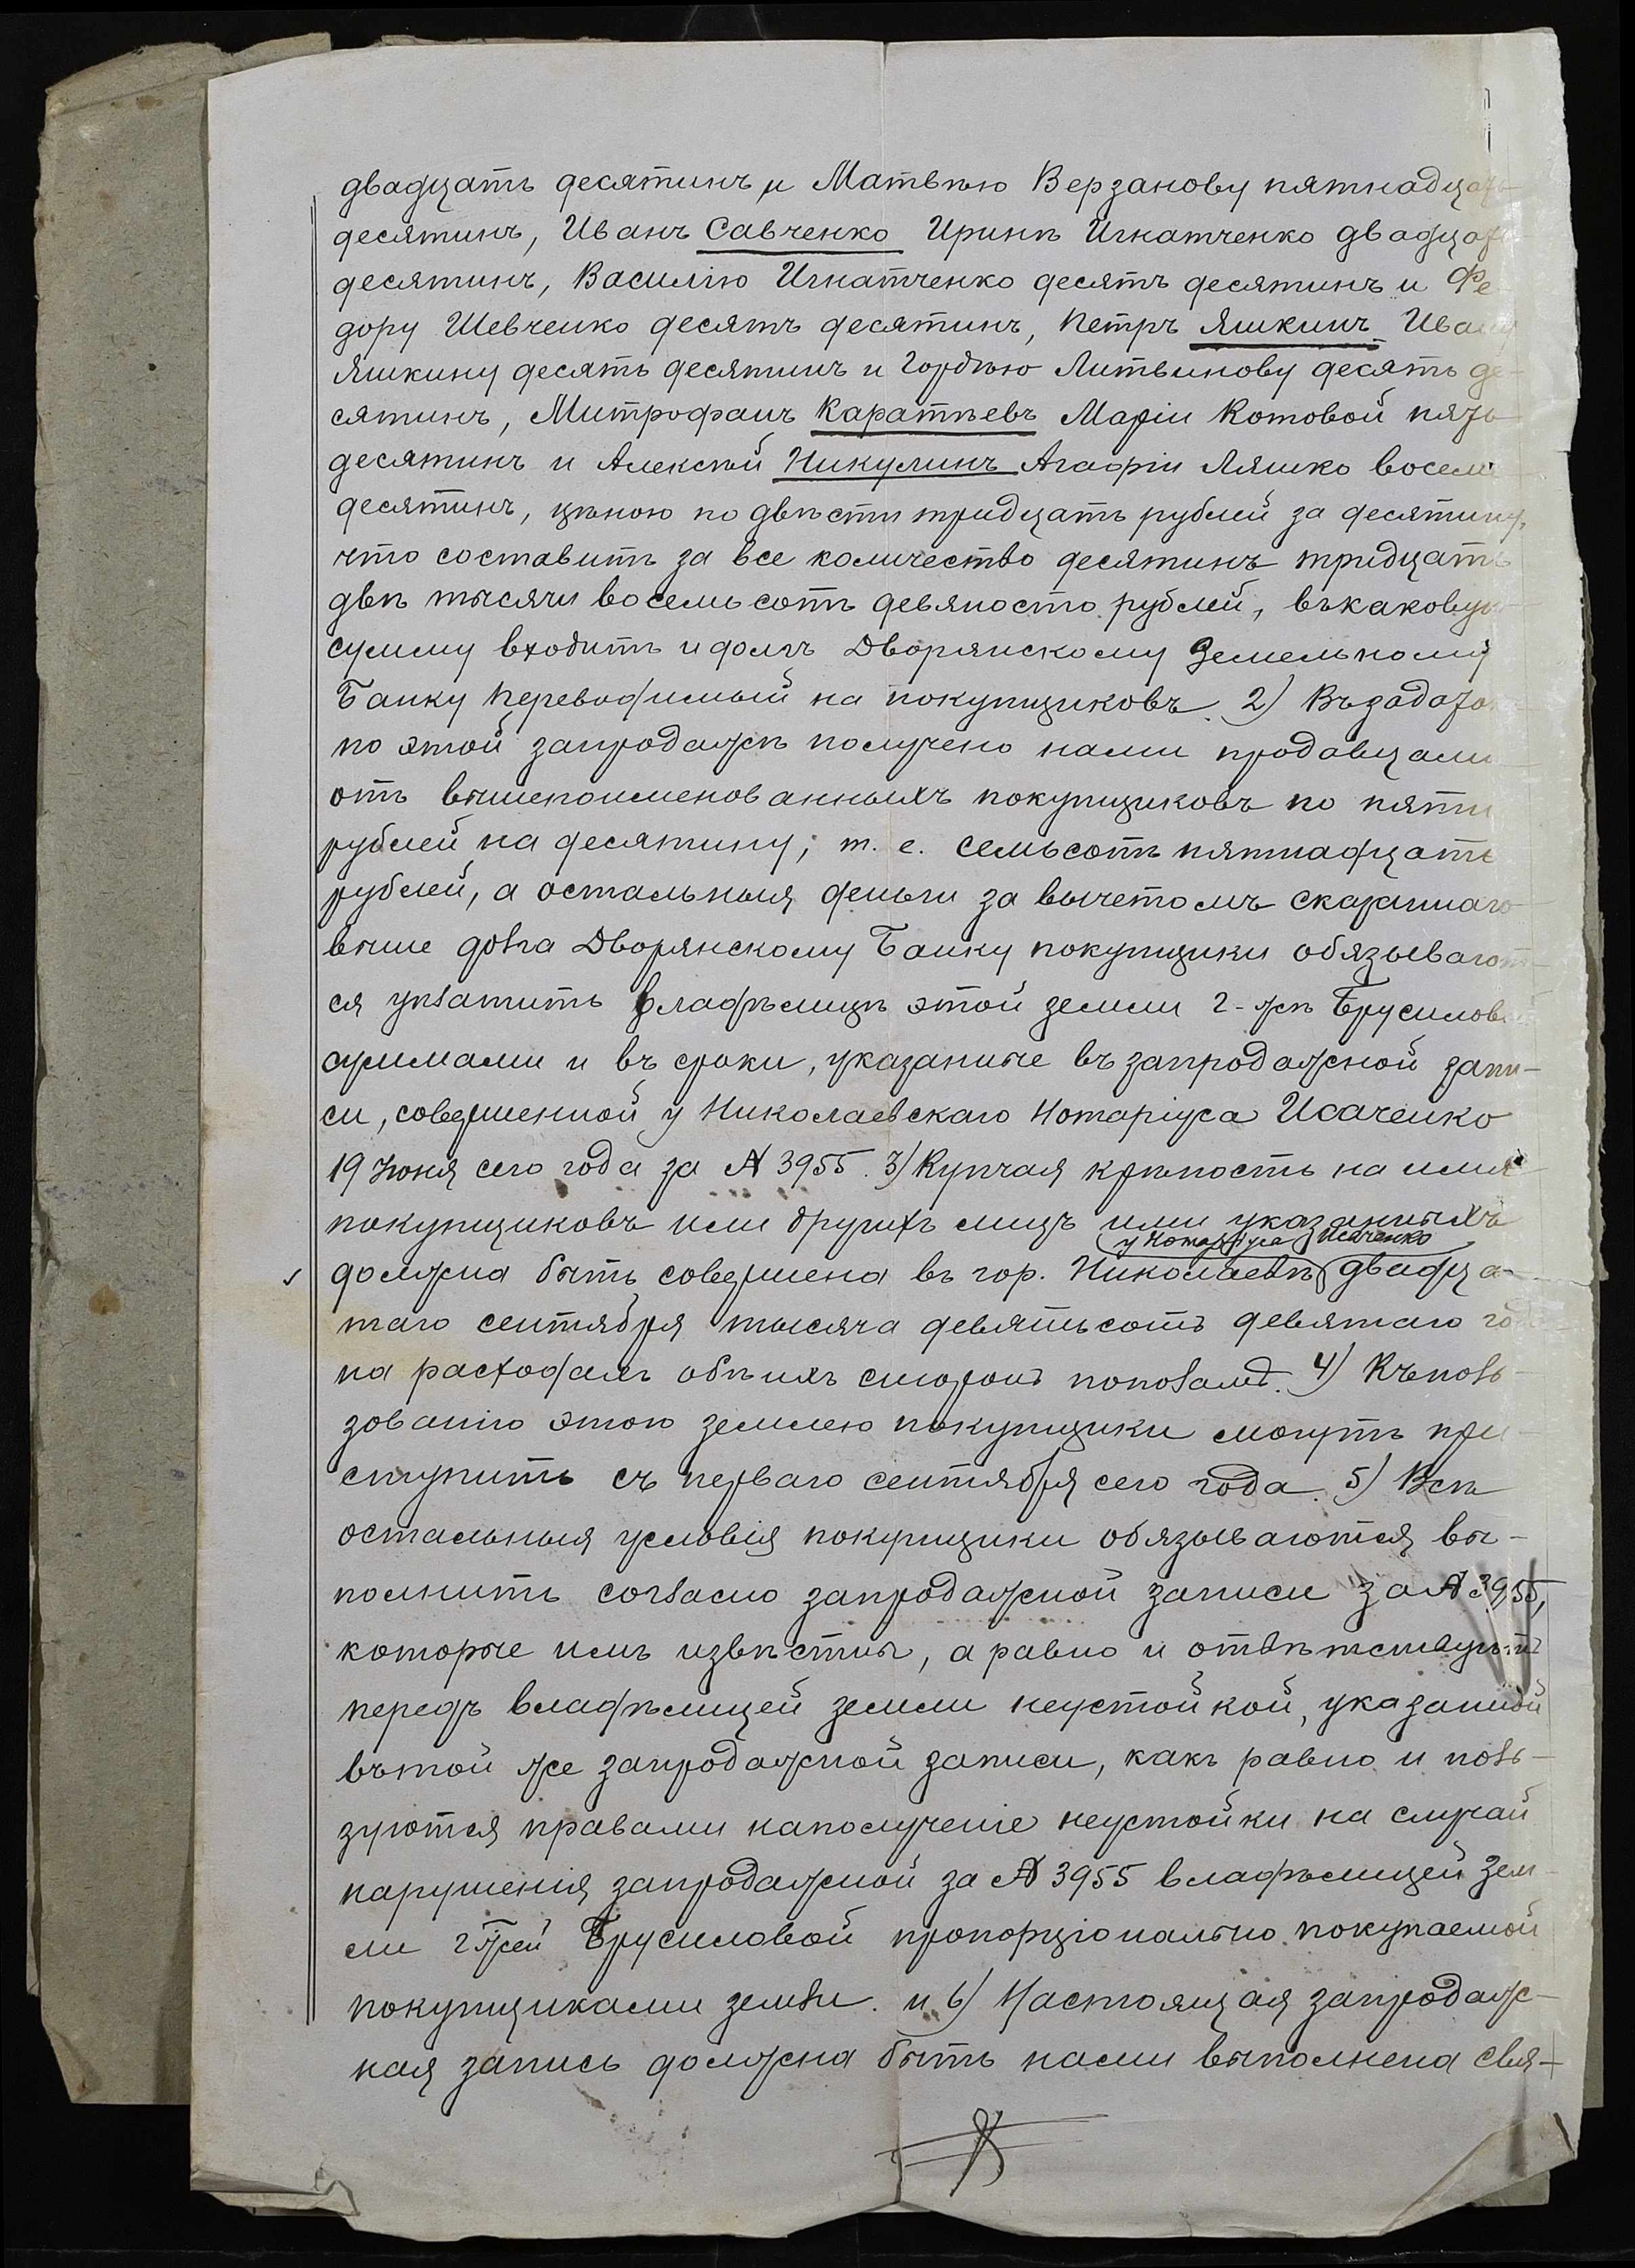 двадцать десятинъ, и Матвѣю Верзанову пятнадцать
десятинъ, Иванъ Савченко Иринѣ Игнатченко двадцать
десятинъ, Василію Игнатченко десять десятинъ и Фе-
дору Шевченко десять десятинъ, Петръ Яшкинъ Ивану
Яшкину десять десятинъ и Гордѣю Литвинову десять де-
сятинъ, Митрофанъ Каратѣевъ Маріи Котовой пять
десятинъ и Алексѣй Никулинъ Агафіи Ляшко восемь
десятинъ, цѣною по двѣсти тридцать рублей за десятину,
что составитъ за все количество десятинъ тридцать
двѣ тысячи восемьсотъ девяносто рублей, въ каковую
сумму входитъ и долгъ Дворянскому Земельному
Банку переводимый на покупщиковъ. 2) Въ задатокъ
по этой запродажѣ получено нами продавцами
отъ вышепоименованныхъ покупщиковъ по пяти
рублей на десятину, т. е. семьсотъ пятнадцать
рублей, а остальныя деньги за вычетомъ сказаннаго
выше долга Дворянскому Банку покупщики обязывают-
ся уплатить владѣлицѣ этой земли г-жѣ Брусиловой
суммами и въ сроки, указанные въ запродажной запи-
си, совершенной у Николаевскаго Нотаріуса Исаченко
19 Іюня сего года за № 3955. 3) Купчая крѣпость на имя
покупщиковъ или другихъ лицъ ими указанныхъ
у Нотаріуса Исаченко
должна быть совершена въ гор. Николаевѣ двадца-
таго сентября тысяча девятьсотъ девятаго года
на расходахъ обѣихъ сторонъ пополамъ. 4) Къ поль-
зованію этою землею покупщики могутъ при-
ступить съ перваго сентября сего года. 5) Всѣ
остальныя условія покупщики обязываются вы-
полнить согласно запродажной записи за № 3955,
которые имъ извѣстны, а равно и отвѣтствуютъ
передъ владѣлицей земли неустойкой, указанной
въ той же запродажной записи, какъ равно и поль-
зуются правами на полученіе неустойки на случай
нарушенія запродажной за № 3955 владѣлицей зем-
ли г-жей Брусиловой пропорціонально покупаемой
покупщиками земли. и 6) Настоящая запродаж-
ная запись должна быть нами выполнена свя-